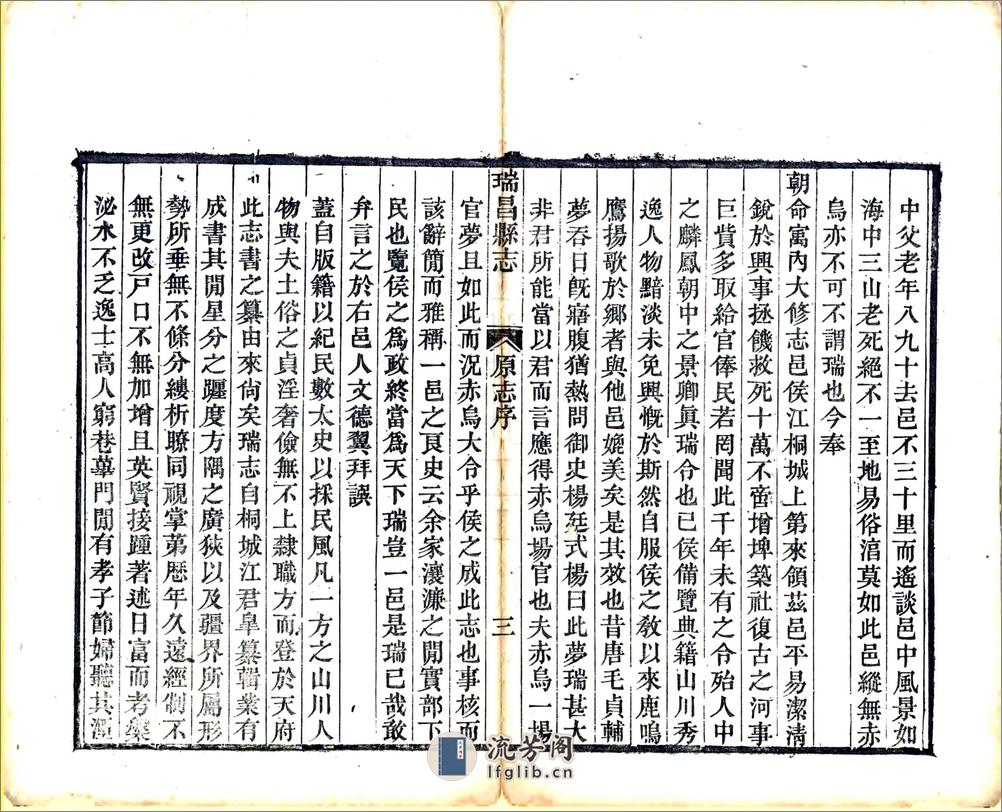 中父老年八九十去邑不三十里而遙談邑中風景如
海中三山老死絕不一至地易俗涫莫如此邑縱無赤
烏亦不可不謂瑞也今奉
朝命寓內大修志邑侯江桐城上第來領茲邑平易潔清
銳於興事拯饑救死十萬不啻增埤築社復古之河事
巨貲多取給官俸民若罔聞此千年未有之令殆人中
之麟鳳朝中之景卿眞瑞令也已侯備覽典籍山川秀
逸人物黯淡未免興慨於斯然自服侯之敎以來鹿鳴
鷹揚歌於鄉者與他邑媲美矣是其效也昔唐毛貞輔
夢吞日旣寤腹猶熱問御史楊廷式楊曰此夢瑞甚大
非君所能當以君而言應得赤烏場官也夫赤烏一場
瑞昌縣志 原志序 三
官夢且如此而況赤烏大令乎侯之成此志也事核而
該辭簡而雅稱一邑之良史云余家瀼濂之閒實部下
民也覽侯之爲政終當爲天下瑞豈一邑是瑞已哉敢
弁言之於右邑人文德翼拜譔
蓋自版籍以紀民數太史以採民風凡一方之山川人
物與夫土俗之貞淫奢儉無不上隸職方而登於天府
此志書之纂由來尙矣瑞志自桐城江君皐纂輯業有
成書其閒星分之躔度方隅之廣狹以及疆界所屬形
勢所垂無不條分縷析瞭同視掌苐歴年久遠經制不
無更改戸口不無加增且英賢接踵著述日富而考槃
泌水不乏逸士高人窮巷蓽門閒有孝子節婦聽其湮
流芳阁
lfglib.cn